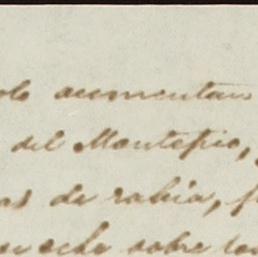 aumentan
del Montepio,
as de rabia,
eche sobre